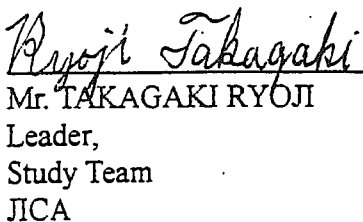 Ryoji Takagaki
Mr. TAKAGAKI RYOJI
Leader,
Study Team
JICA